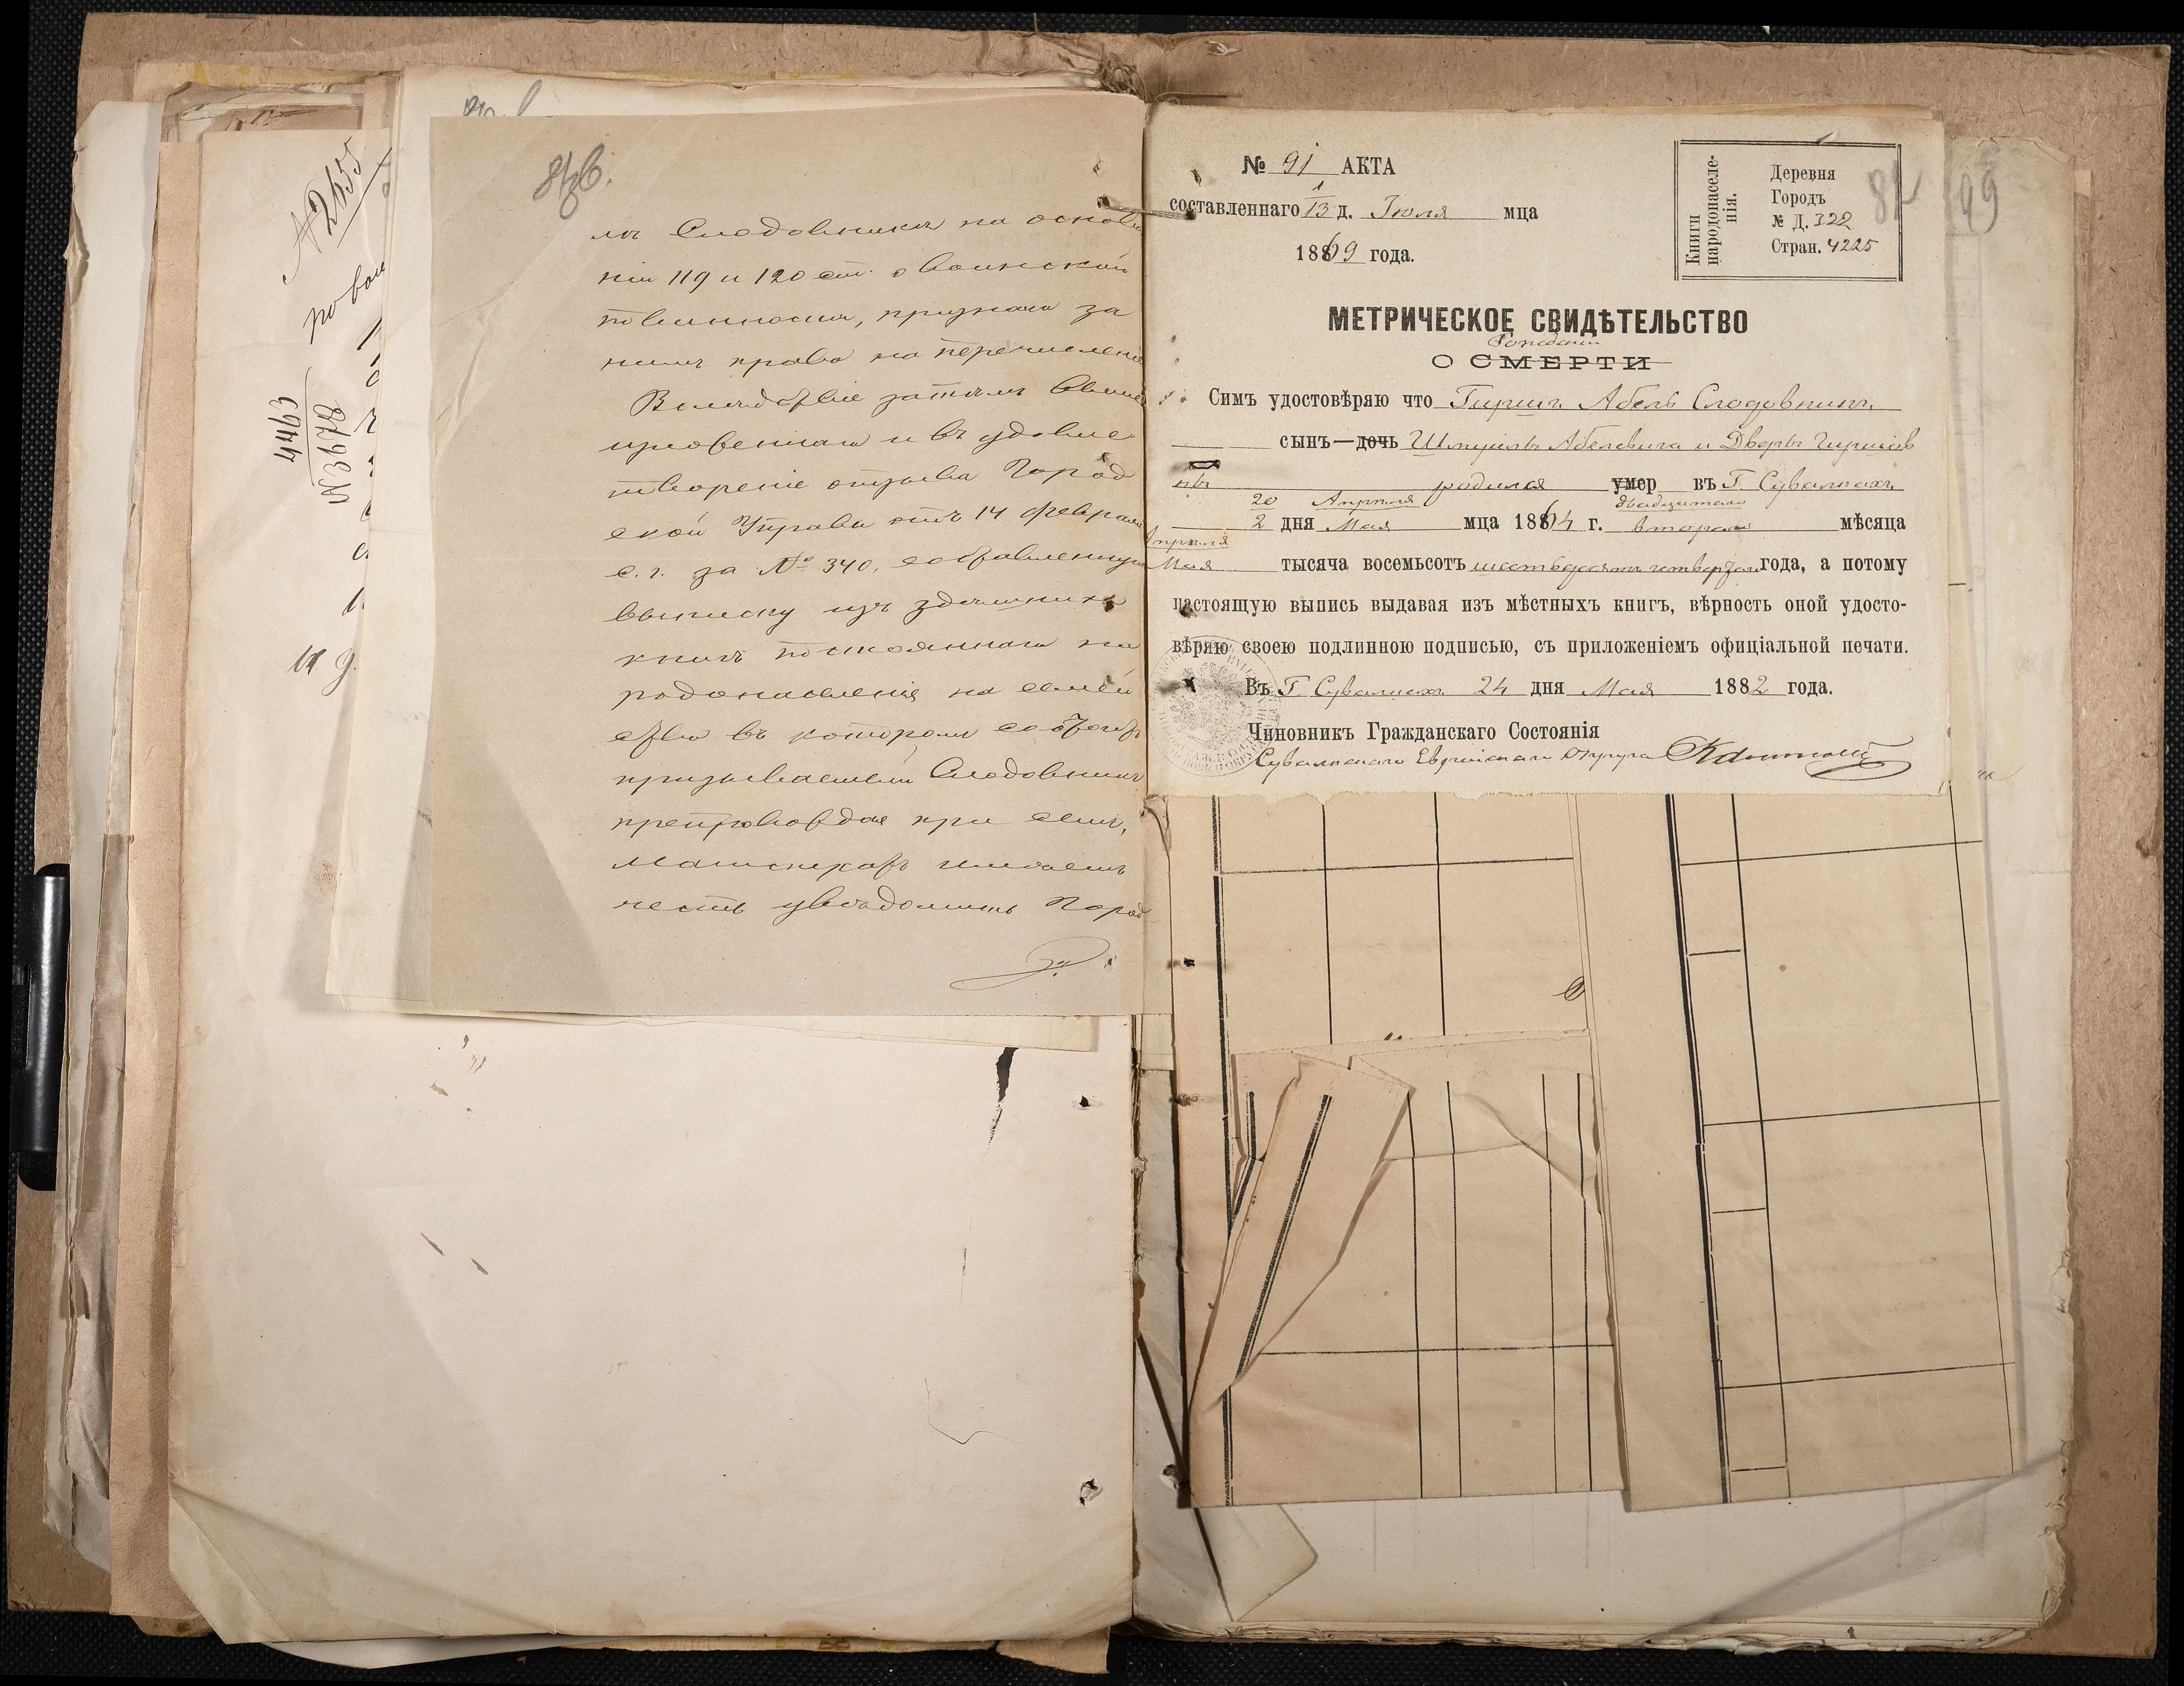 № 2655
по вои
193678
4463
81б.
мъ Слодовникъ на основа
ніи 119 и 120 ст. о воинской
повинности, признали за
нимъ право на перечисленіе
Вслѣдствіе затѣмъ
и въ удовле
твореніе отзыва Город
ской Управы отъ 14 Февраля
с. г. за № 340, составленную
выписку изъ здѣшнихъ
книгъ постояннаго на
родонаселенія на семей
ство въ которомъ состоитъ
призываемый Слодовникъ
препровождая при семъ,
Магистратъ имѣетъ
честь увѣдомить Город
№ 91 АКТА
составленнаго 1/13 д. Іюля мца
1869 года.
Книги народонаселенія.
Деревня
Городъ
№ Д. 322
Стран. 4225
82
99
МЕТРИЧЕСКОЕ СВИДѢТЕЛЬСТВО
Рожденіи
О СМЕРТИ
Симъ удостовѣряю что Гиршъ Абель Слодовникъ
сынъ—дочь Шмуиль Абелевича и Дверы Гиршов
ны родился умер въ Г. Сувалкахъ
20 Апрѣля двадцатаго
2 дня Мая мца 1864 г. втораго мѣсяца
Апрѣля
Мая тысяча восемьсотъ шестьдесятъ четвертаго года, а потому
настоящую выпись выдавая изъ мѣстныхъ книгъ, вѣрность оной удосто-
вѣряю своею подлинною подписью, съ приложеніемъ офиціальной печати.
Въ Г Сувалкахъ 24 дня Мая 1882 года.
Чиновникъ Гражданскаго Состоянія
Сувалкскаго Еврейскаго Округа